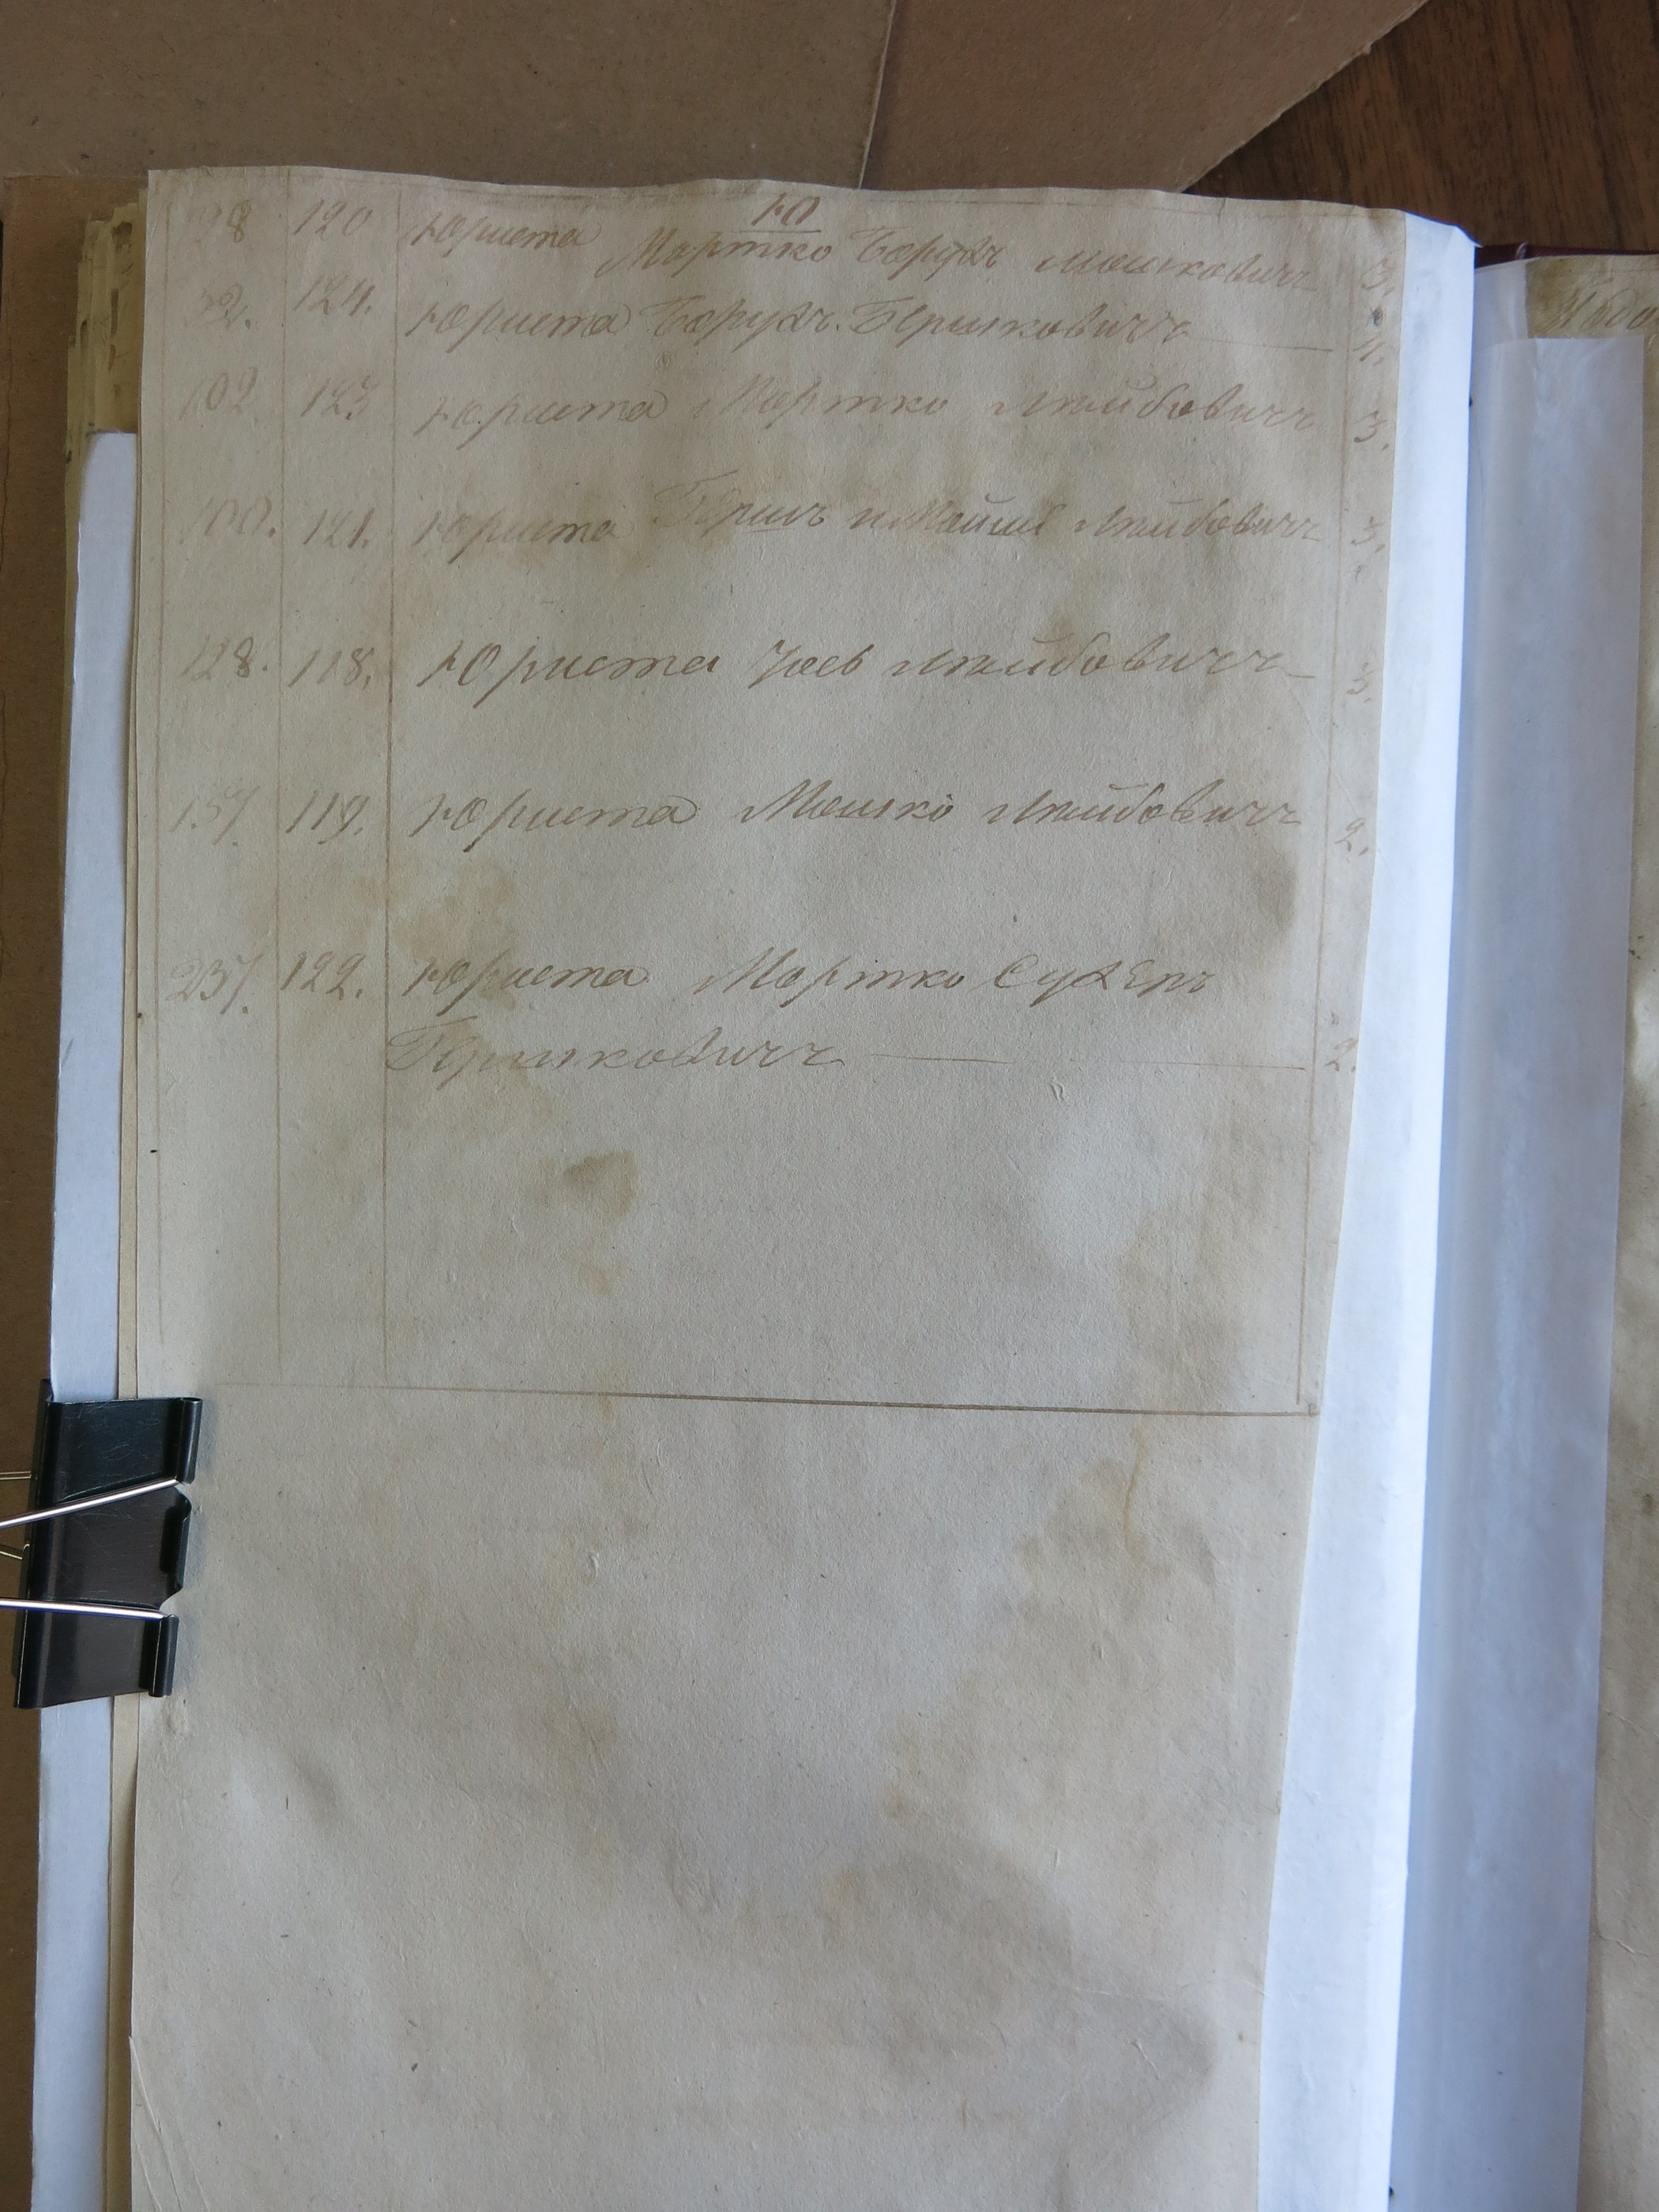 Ю
28 120 Юриста Мортко Борухъ Мошковичъ 3.
32. 124. Юриста Борухъ Гершковичъ 4.
102 123 Юриста Мортко Лейбовичъ 3.
100. 121. Юриста Гершъ и Мойше Лейбовичъ 3.
128. 118. Юриста Лейбовичъ 3.
157. 119. Юриста Мошко Лейбовичъ 2.
237. 122. Юриста Мортко Сухеръ
Гершковичъ 2.